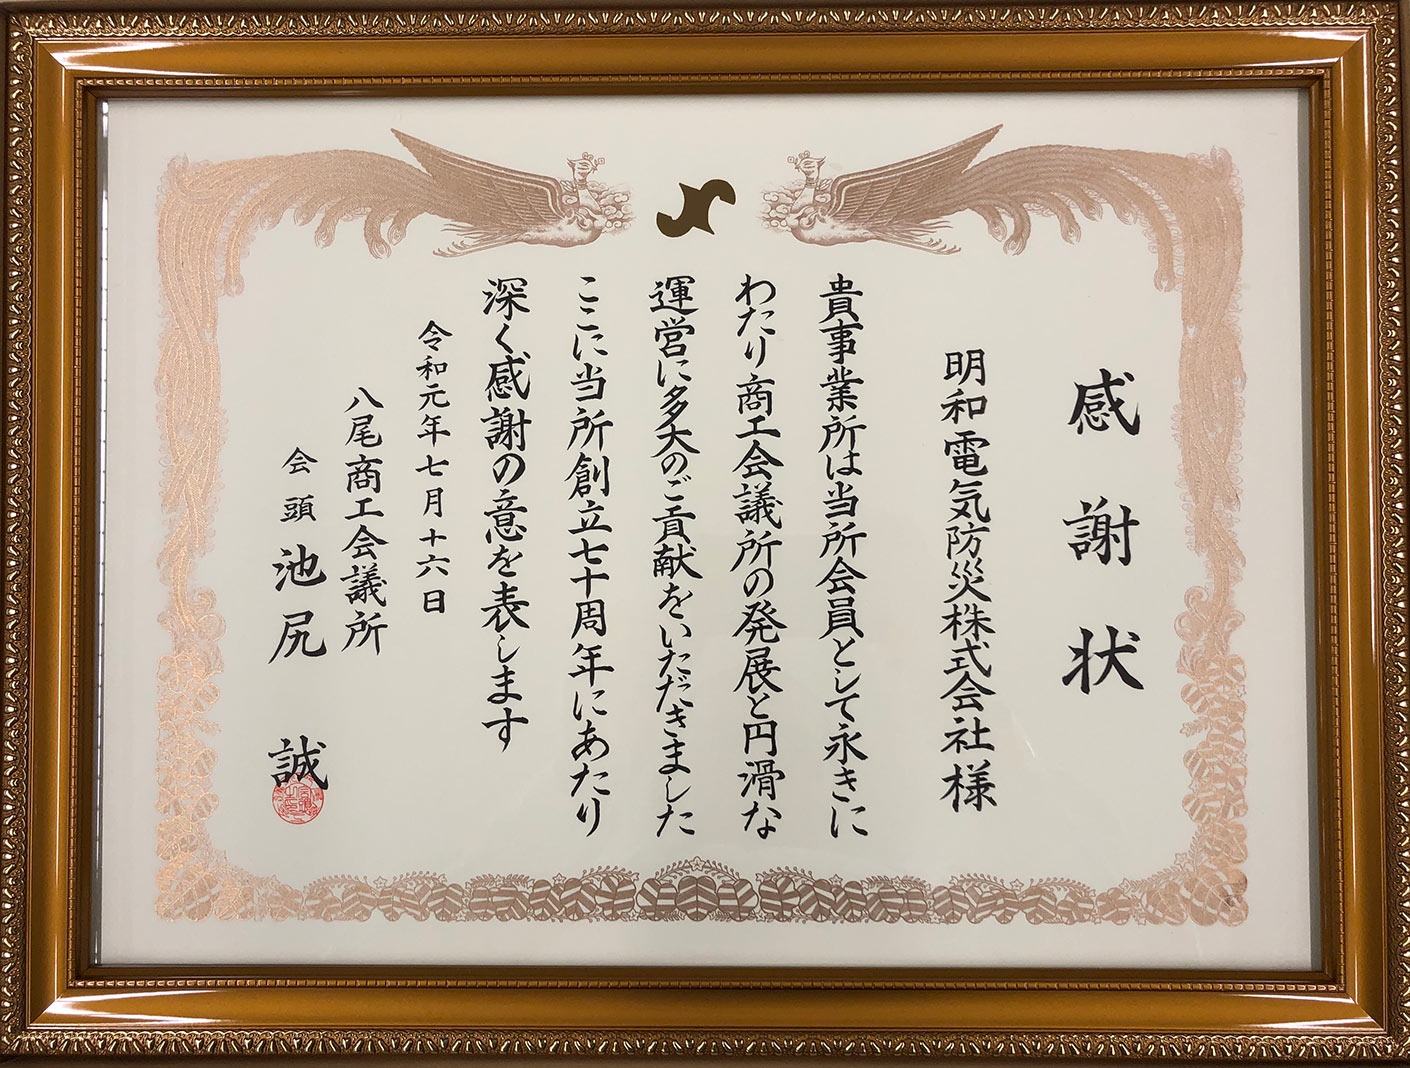 感謝状
明和電気防災株式会社様
貴事業所は当所会員として永きに
わたり商工会議所の発展と円滑な
運営に多大のご貢献をいただきました
ここに当所創立七十周年にあたり
深く感謝の意を表します
令和元年七月十六日
八尾商工会議所
会頭 池尻 誠